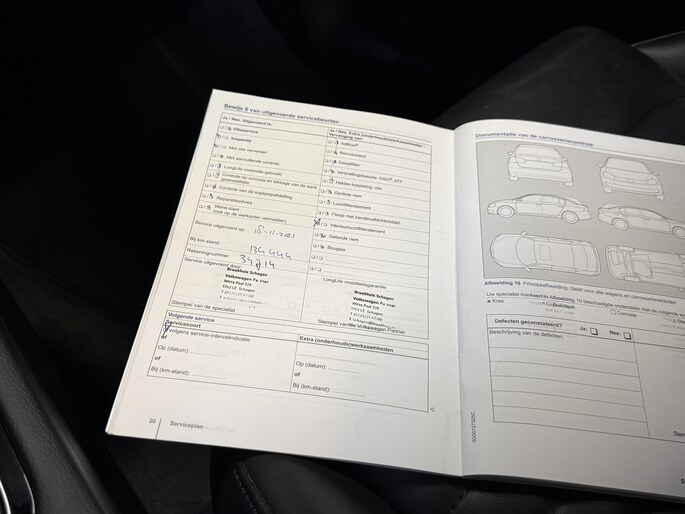 Bewijs 8 van uitgevoerde servicebeurten
Ja / Nee: Uitgevoerd is:
Olieservice
Inspectie
Met olie verversen
Met aanvullende controle
LongLife motorolie gebruikt
Controle van de koplampafstelling
Reparatieadvies
Wens klant
(ook op de werkorder vermelden)
Service uitgevoerd op: 18-11-2021
Bij km-stand: 134444
Rekeningnummer: 34714
Service uitgevoerd door:
Broekhuis Schagen
Volkswagen Partner
Witte Paal 326
Schagen
Stempel van de specialist
Ja / Nee: Extra (onderhouds)werkzaamheden -
Vervanging van:
AdBlue®
Remvloeistof
Dieselfilter
Versnellingsbakolie: DSG®, ATF
Haldex koppeling: olie
Getande riem
Luchtfilterelement
Flesje met bandenafdichtmiddel
Interieurluchtfilterelement
Getande riem
Bougies
LongLife mobiliteitsgarantie:
Broekhuis Schagen
Volkswagen Partner
Witte Paal 326
Schagen
Stempel van de Volkswagen Partner
Volgende service
Servicesoort
Volgens service-intervalindicatie
of
Op (datum):
of
Bij (km-stand):
Extra (onderhouds)werkzaamheden
Op (datum):
of
Bij (km-stand):
20 Serviceplan
Documentatie van de carrosseriecontrole
Afbeelding 10 Principeafbeelding. Geldt voor alle wagens en carrosserieën
Uw specialist markeert in Afbeelding 10 beschadigde onderdelen met de volgende
x Kras
Corrosie
Defecten geconstateerd?
Ja:
Nee:
Beschrijving van de defecten: